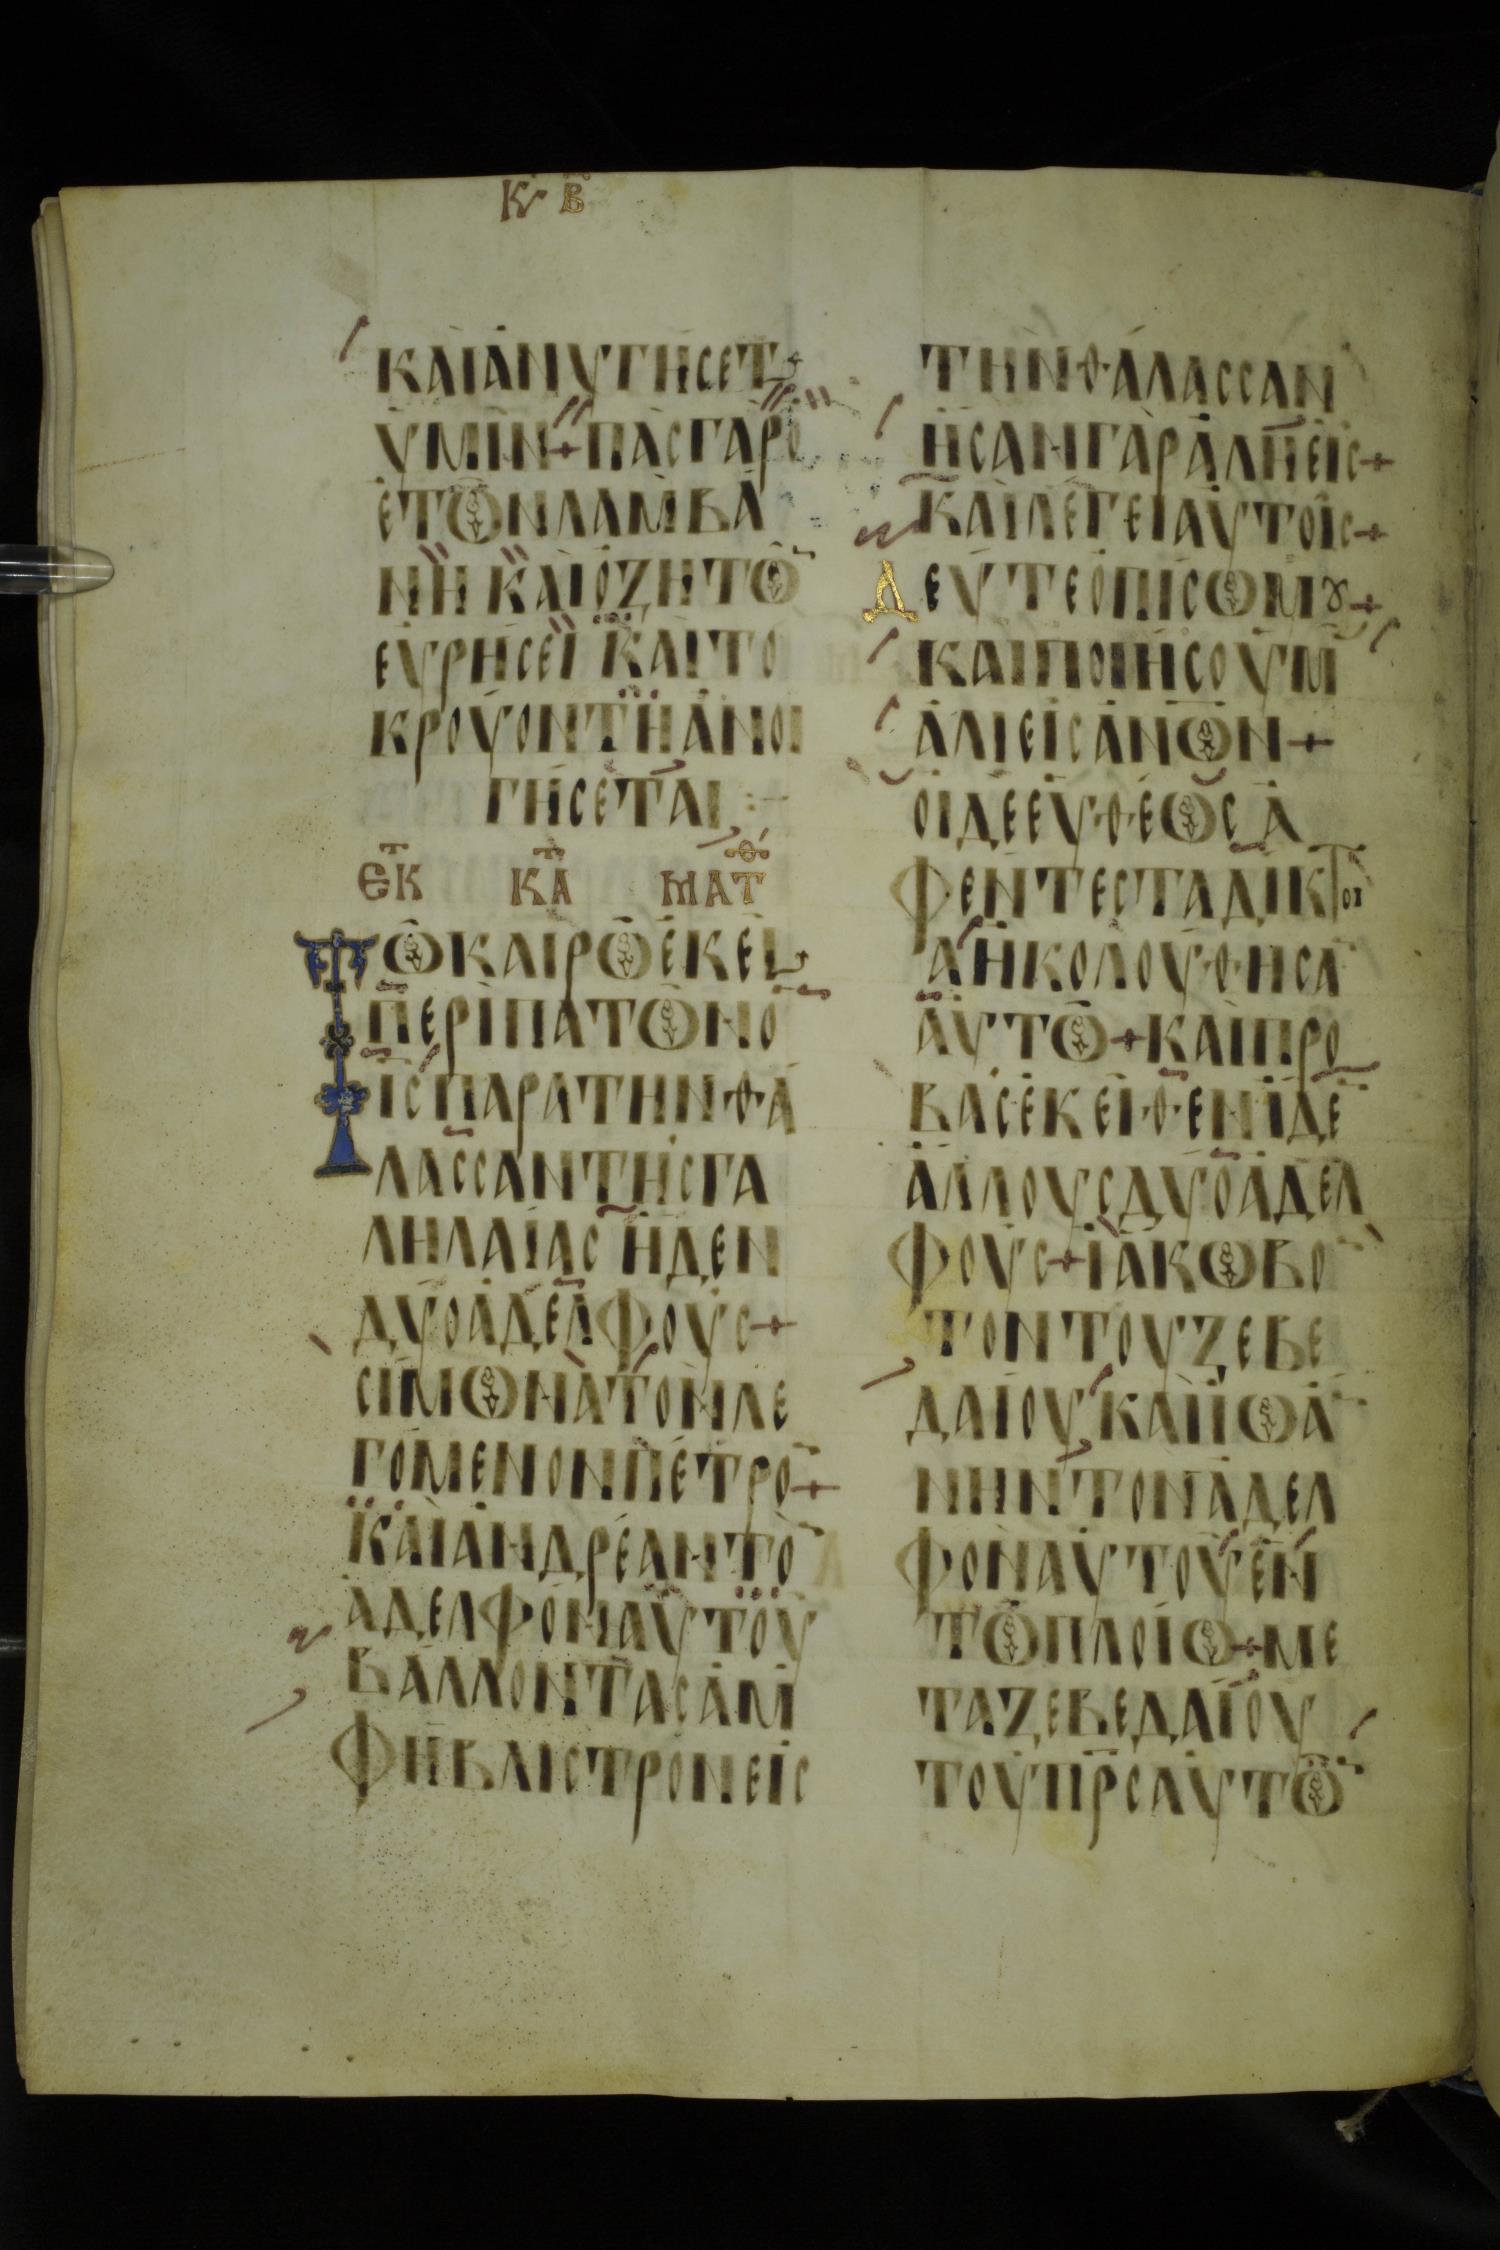 Κυ Β
ΚΑΙ ΑΝΥΓΗΣΕΤ
ΥΜΙΝ + ΠΑΣ ΓΑΡ Ο
ΕΤΩΝ ΛΑΜΒΑ
ΝΗ Η ΚΑΙ Ο ΖΗΤΩ
ΕΥΡΗΣΕΙ ΚΑΙ ΤΟ
ΚΡΟΥΟΝΤΗ ΑΝΟΙ
ΓΗΣΕΤΑΙ :-
ΕΚ Τ ΚΑΤ ΜΑΤΘ
ΤΩ ΚΑΙΡΩ ΕΚΕΙ
ΠΕΡΙΠΑΤΩΝ Ο
ΙΣ ΠΑΡΑ ΤΗΝ ΘΑ
ΛΑΣΣΑΝ ΤΗΣ ΓΑ
ΛΗΛΑΙΑΣ ΗΔΕΝ
ΔΥΟ ΑΔΕΛΦΟΥΣ +
ΣΙΜΩΝΑ ΤΟΝ ΛΕ
ΓΟΜΕΝΟΝ ΠΕΤΡΟ +
ΚΑΙ ΑΝΔΡΕΑΝ ΤΟ
ΑΔΕΛΦΟΝ ΑΥΤΟΥ
ΒΑΛΛΟΝΤΑΣ ΑΜ
ΦΗΒΛΙΣΤΡΟΝ ΕΙΣ
ΤΗΝ ΘΑΛΑΣΣΑΝ
ΗΣΑΝ ΓΑΡ ΑΛΗΕΙΣ +
ΚΑΙ ΛΕΓΕΙ ΑΥΤΟΙΣ +
ΔΕΥΤΕ ΟΠΙΣΩ ΜȢ +
ΚΑΙ ΠΟΙΗΣΟ ΥΜ
ΑΛΙΕΙΣ ΑΝΩΝ +
ΟΙ ΔΕ ΕΥΘΕΩΣ Α
ΦΕΝΤΕΣ ΤΑ ΔΙΚΤΟΙ
Α ΗΚΟΛΟΥΘΗΣΑ
ΑΥΤΩ + ΚΑΙ ΠΡΟ
ΒΑΣ ΕΚΕΙΘΕΝ ΙΔΕ
ΑΛΛΟΥΣ ΔΥΟ ΑΔΕΛ
ΦΟΥΣ + ΙΑΚΩΒΟ
ΤΟΝ ΤΟΥ ΖΕΒΕ
ΔΑΙΟΥ ΚΑΙ ΙΩΑ
ΝΗΝ ΤΟΝ ΑΔΕΛ
ΦΟΝ ΑΥΤΟΥ ΕΝ
ΤΩ ΠΛΟΙΩ + ΜΕ
ΤΑ ΖΕΒΕΔΑΙΟΥ
ΤΟΥ ΠΡΣ ΑΥΤΩ